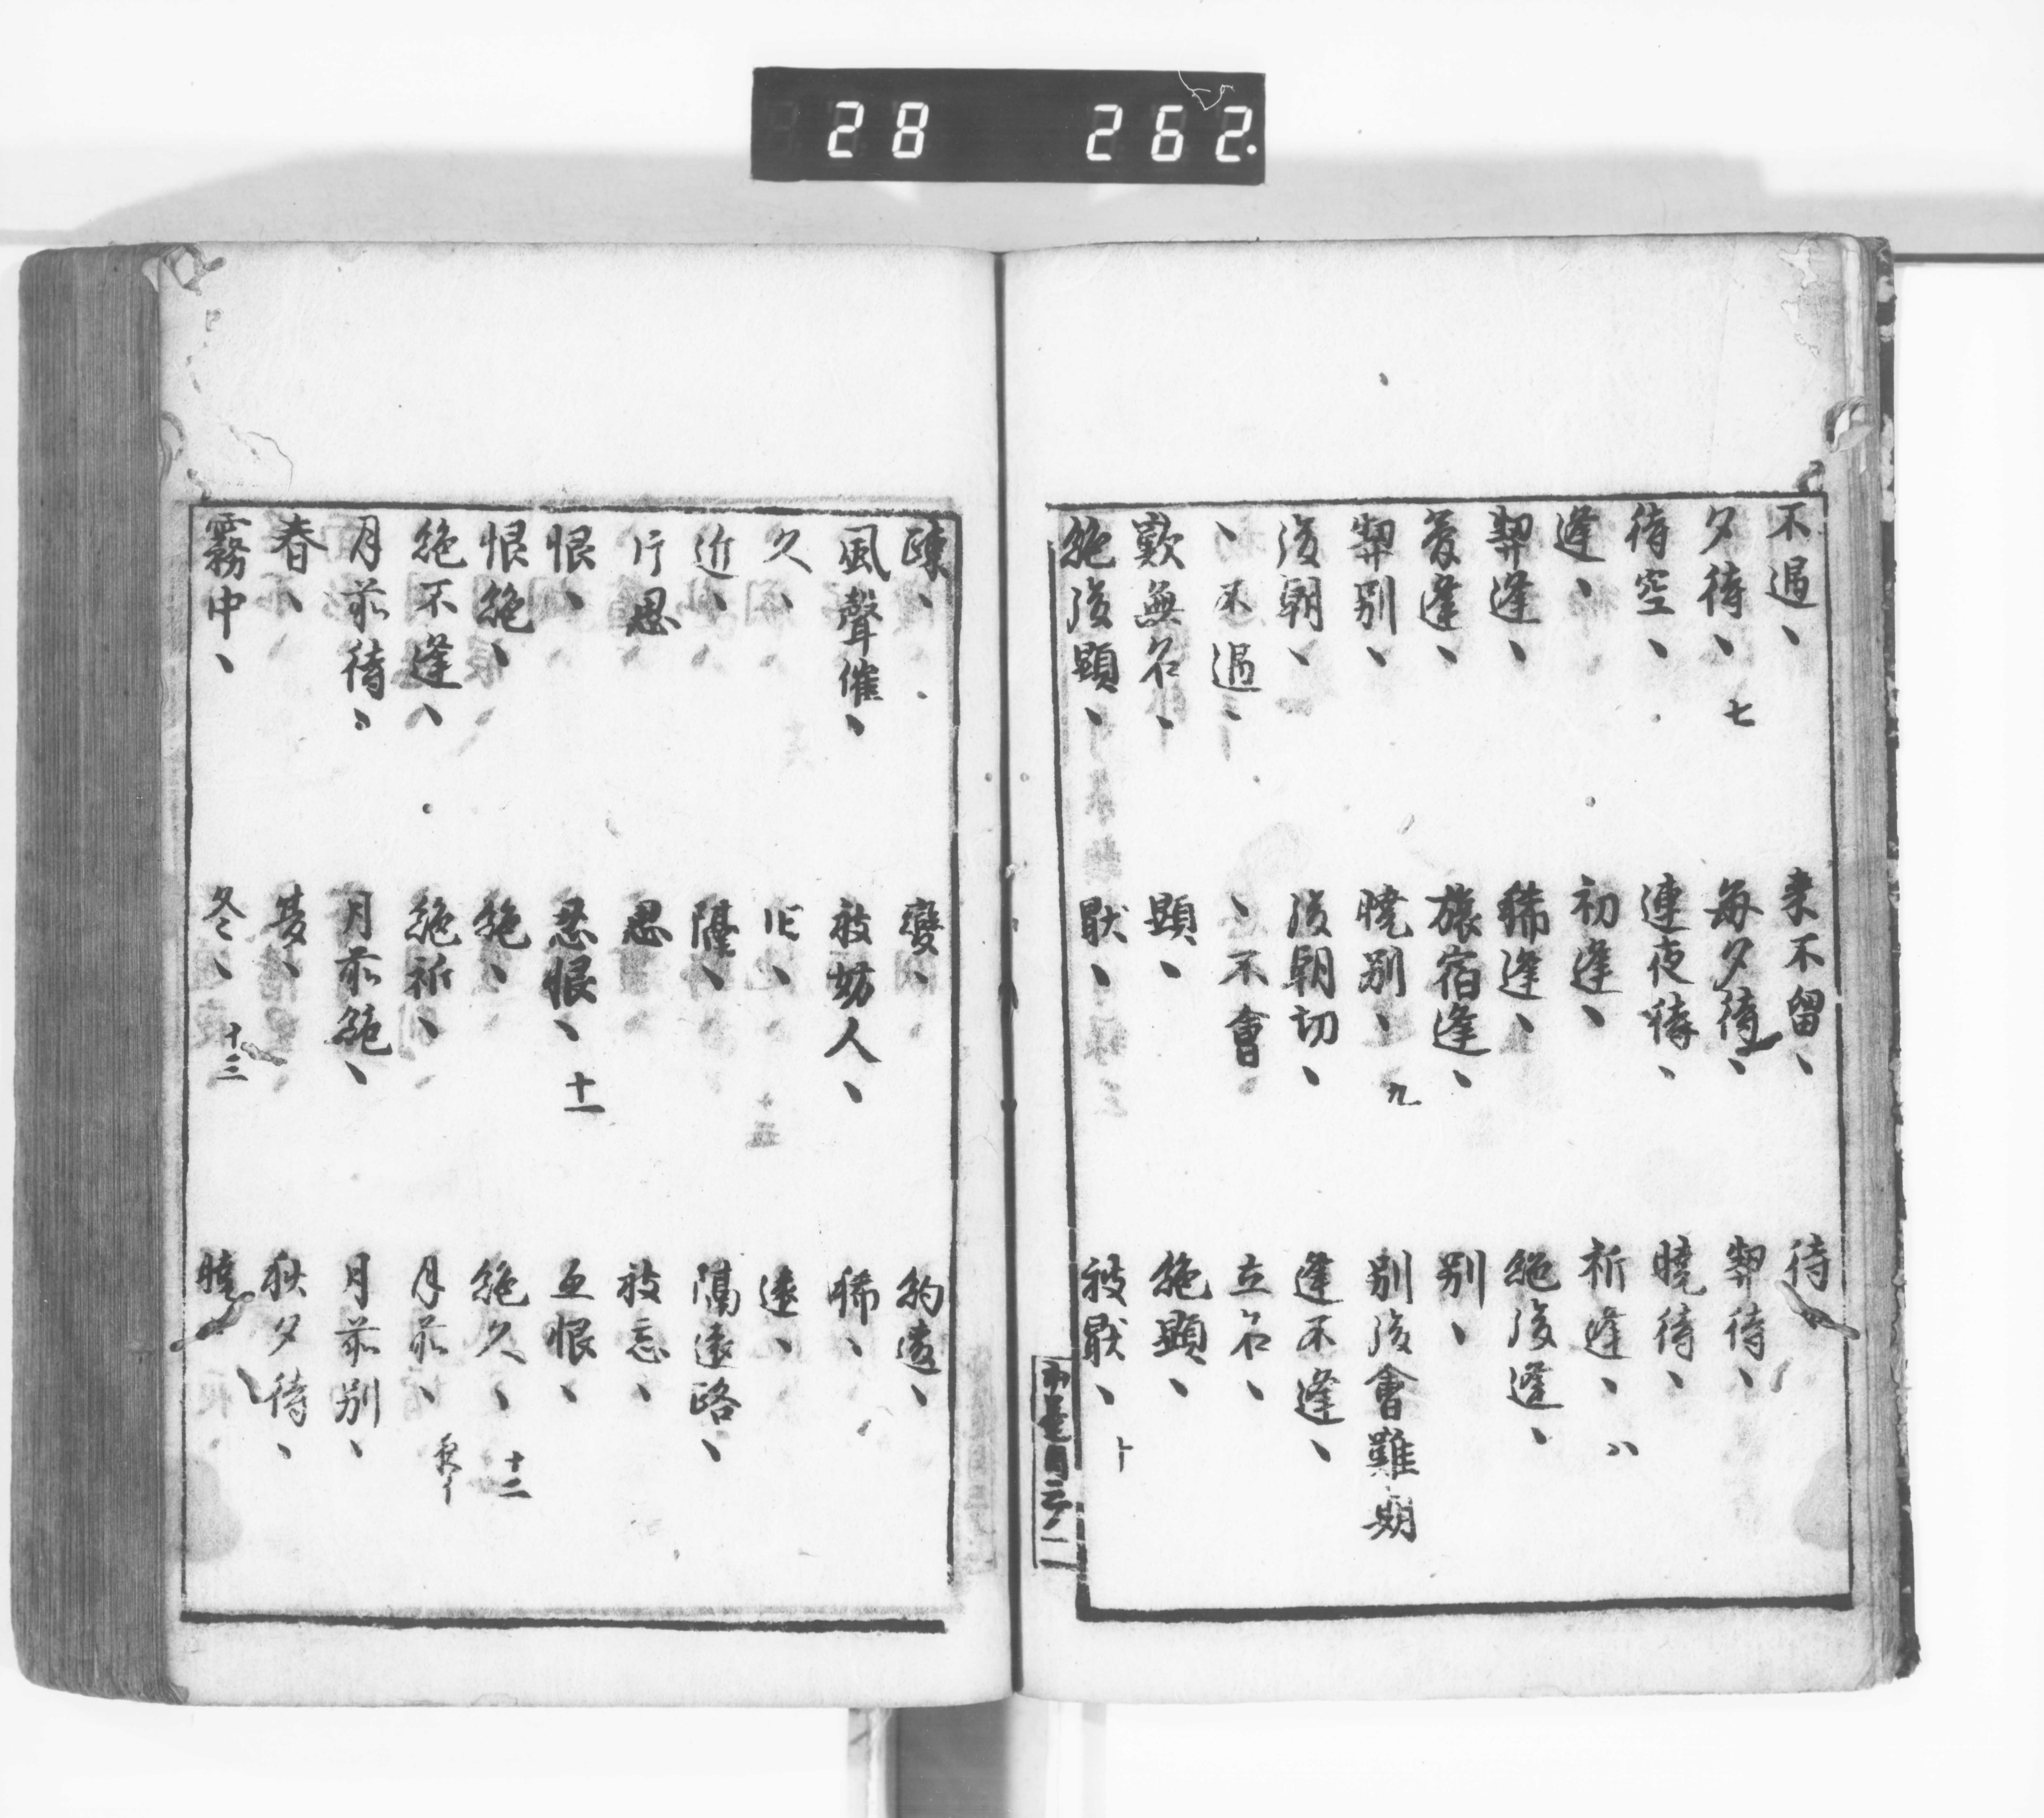 28 262.
不遇、
来不留、
待、
夕待、 七
毎夕待、
契待、
待空、
連夜待、
暁待、
逢、
初逢、
祈逢、 八
契逢、
稀逢、
絶後逢、
夢逢、
旅宿逢、
別、
契別、
暁別、 九
別後會難期
後朝、
後朝切、
逢不逢、
、不遇、
、不會、
立名、
歎無名、
顕、
絶顕、
絶後顕、
厭、
被厭、 十
疎、
變、
約違、
風聲催、
被妨人、
稀、
久、
旧、
遠、
近、
隠、
隔遠路、
片思
思
被忘、
恨、
忍恨、 十一
互恨、
恨絶、
絶、
絶久、 十二
絶不逢、
絶祈、
月前、
月前待、
月前絶、
月前別、
春、
夏、
秋夕待、
霧中、
冬、 十三
暁、